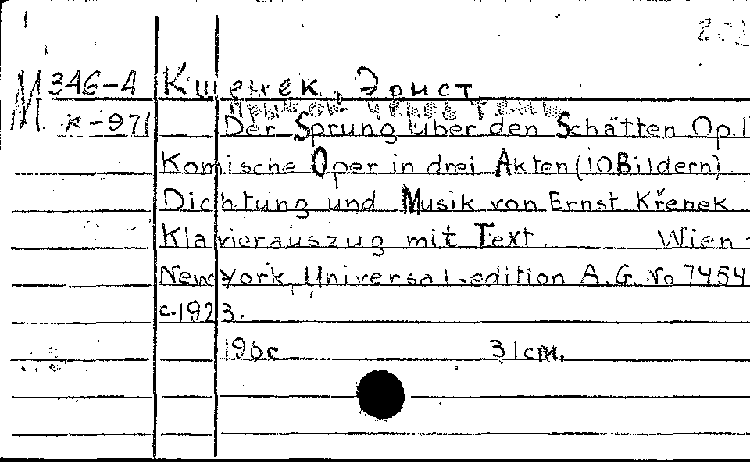 M 346-4 Кшенек, Эрнст
к-971 Der Sprung über den Schatten Op.1
Komische Oper in drei Akten (10 Bildern)
Dichtung und Musik von Ernst Křenek
Klavierauszug mit Text. Wien -
New York, Universal-edition A.G. No 7454
c.1923.
196 c 31 cm.